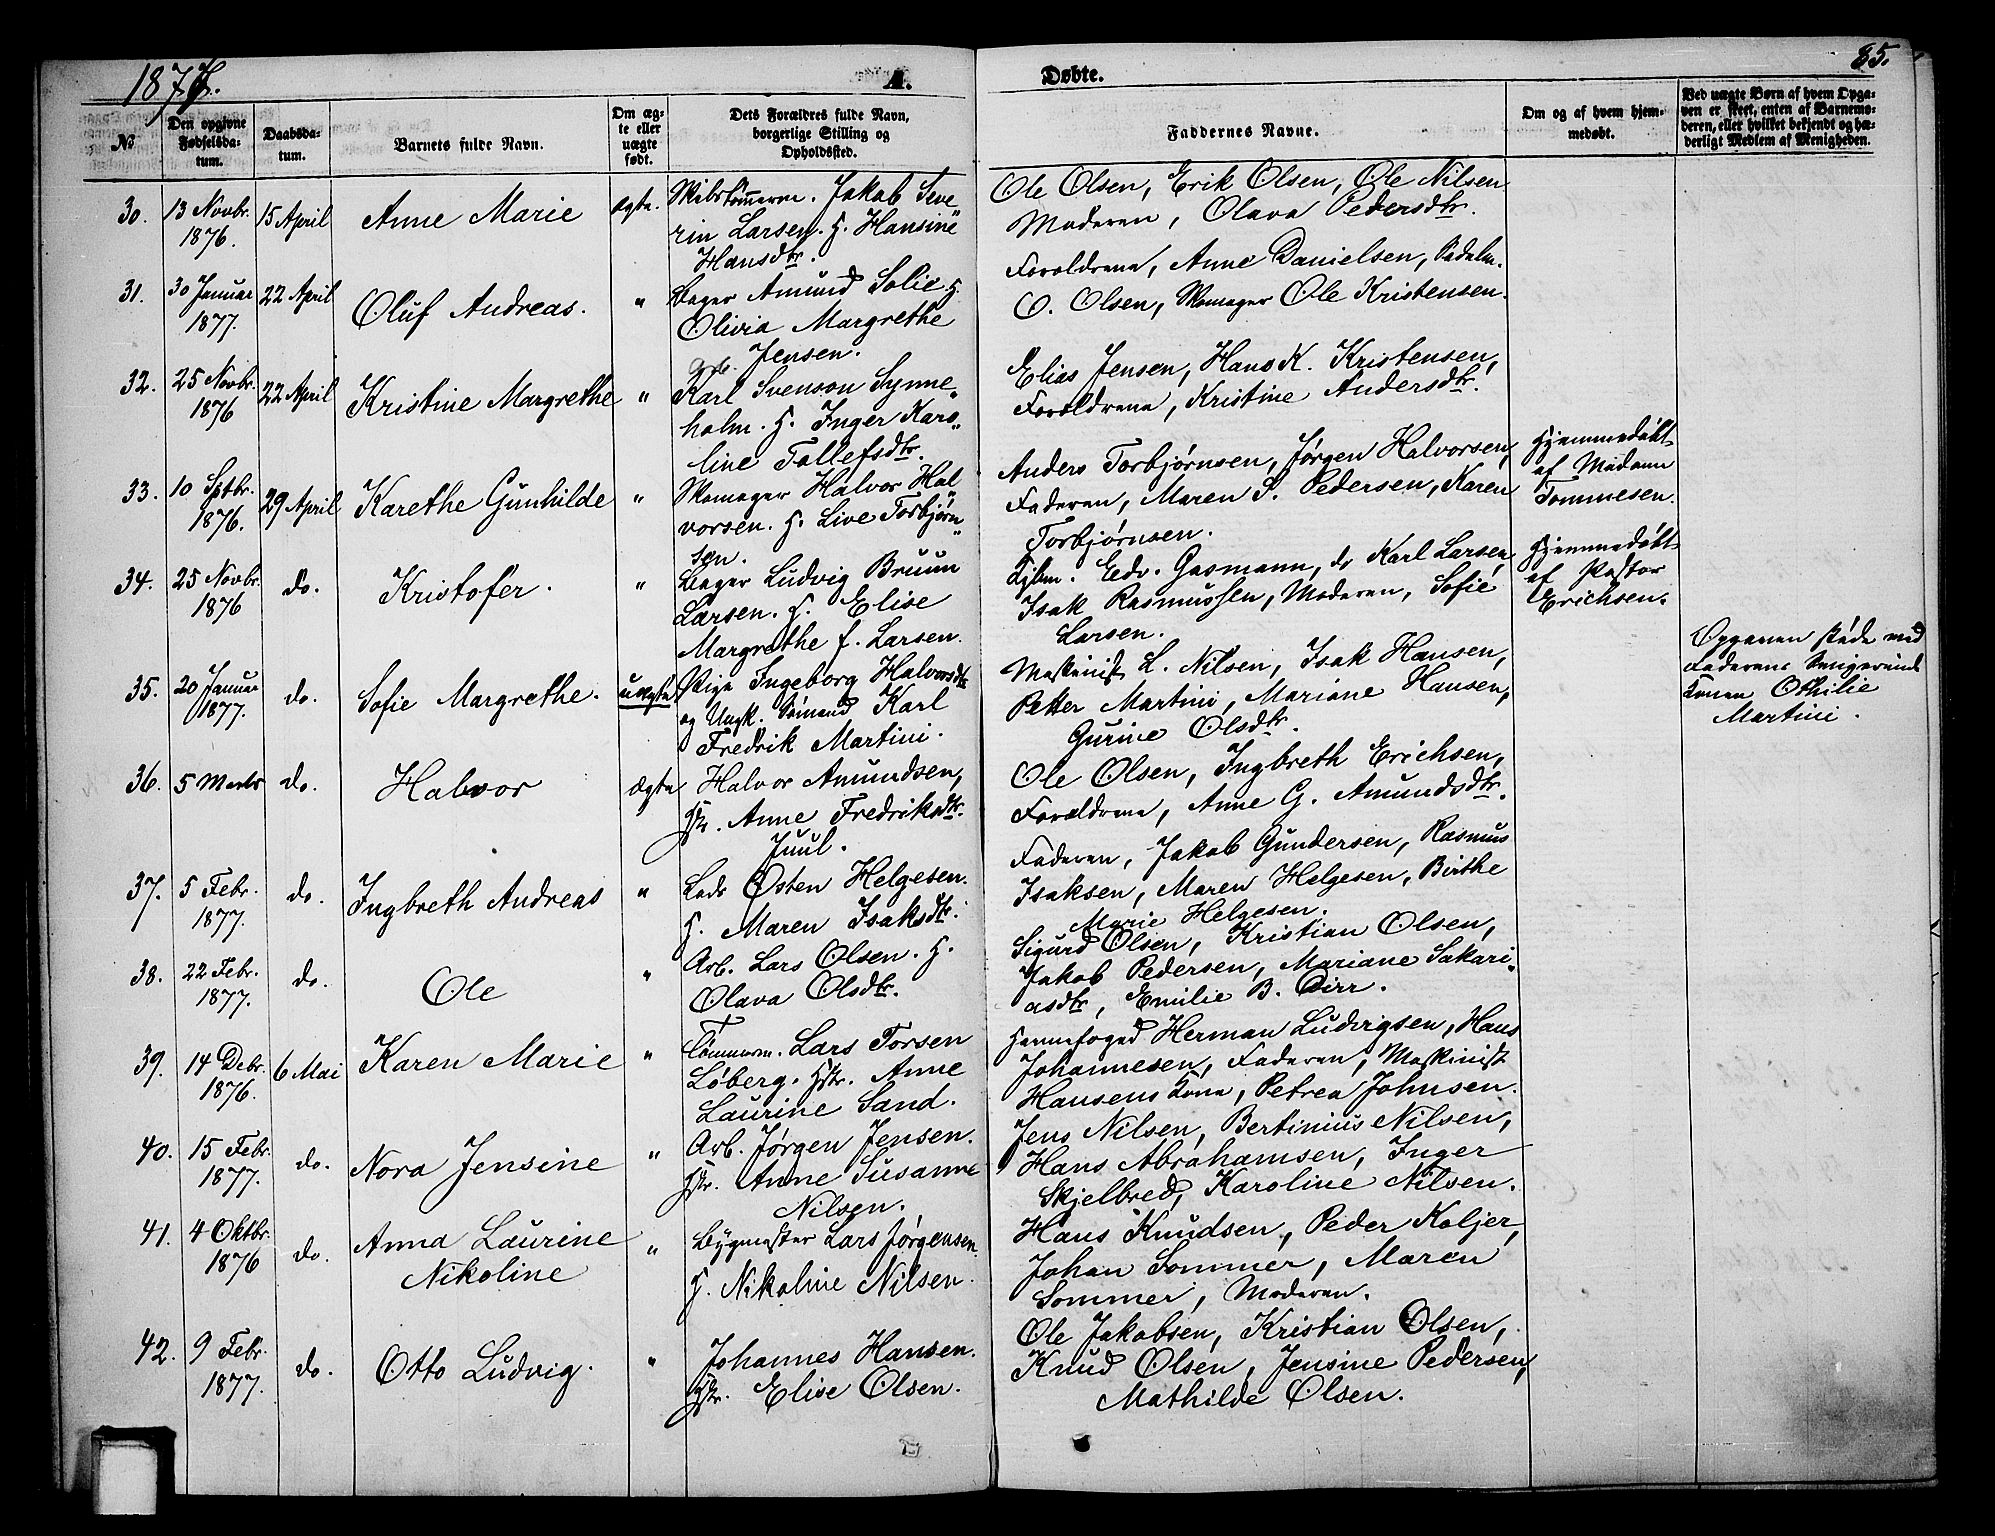 1877. A. Døbte. 85.
No
Den opgivne Fødselsdatum.
Daabsdatum.
Barnets fulde Navn.
Om ægte eller uægte født.
Dets Forældres fulde Navn, borgerlige Stilling og Opholdssted.
Faddernes Navne.
Om og af hvem hjemmedøbt.
Ved uægte Børn af hvem Opgaven er skeet, enten af Barnemoderen, eller hvilket bekjendt og hæderligt Medlem af Menigheden.
30. 13 Novbr. 1876. 15 April Anne Marie ægte.
Skibstømmerm. Jakob Seve
rin Larsen. H. Hansine
Hansdtr.
Ole Olsen, Erik Olsen, Ole Nilsen
Moderen, Olava Pedersdtr.
31. 30 Januar 1877. 22 April Oluf Andreas. "
Bager Amund Solie. H.
Olivia Margrethe
Jensen.
Forældrene, Anne Danielsen,
O. Olsen, Skomager Ole Kristensen.
32. 25 Novbr. 1876 22 April Kristine Margrethe "
Arb.
Karl Svenson Synne„
holm. H. Inger Karo„
line Tollefsdtr.
Elias Jensen, Hans K. Kristensen,
Forældrene, Kristine Andersdtr.
33. 10 Sptbr. 1876. 29 April Karethe Gunhilde "
Skomager Halvor Hal„
vorsen. H. Live Torbjørn„
sen.
Anders Torbjørnsen, Jørgen Halvorsen,
Faderen, Maren S. Pedersen, Karen
Torbjørnsen.
Hjemmedøbt
af Madam
Tommesen.
34. 25 Novbr. 1876 do. Kristofer. "
Bager Ludvig Bruun
Larsen. H. Elise
Margrethe f. Larsen.
Kjbm. Edv. Gasmann, do Karl Larsen,
Isak Rasmussen, Moderen, Sofie
Larsen.
Hjemmedøbt
af Pastor
Erichsen.
35. 20 Januar 1877. do. Sofie Margrethe. uægte
Pige Ingeborg Halvorsdtr
og Ungk. Sømand Karl
Fredrik Martini.
Maskinist L. Nilsen, Isak Hansen,
Petter Martini, Mariane Hansen,
Gurine Olsdtr.
Opgaven skede ved
Faderens Svigerinde
Konen Othilie
Martini.
36. 5 Marts do. Halvor ægte
Halvor Amundsen,
Hstr. Anne Fredriksdtr.
Juul.
Ole Olsen, Ingbreth Erichsen,
Forældrene, Anne G. Amundsdtr.
37. 5 Febr. 1877. do. Ingbreth Andreas "
Lods Østen Helgesen.
H. Maren Isaksdtr.
Faderen, Jakob Gundersen, Rasmus
Isaksen, Maren Helgesen, Birthe
Marie Helgesen.
38. 22 Febr. 1877. do. Ole "
Arb. Lars Olsen. H.
Olava Olsdtr.
Sigurd Olsen, Kristian Olsen,
Jakob Pedersen, Mariane Sakari„
asdtr, Emilie B. Dirr.
39. 14 Debr. 1876. 6 Mai Karen Marie "
Tømmerm. Lars Torsen
Løberg. Hstr. Anne
Laurine Sand.
Havnefoged Herman Ludvigsen, Hans
Johannesen, Faderen, Maskinist
Hansens Kone, Petrea Johnsen.
40. 15 Febr. 1877. do. Nora Jensine "
Arb. Jørgen Jensen.
Hstr. Anne Susanne
Nilsen.
Jens Nilsen, Bertinius Nilsen,
Hans Abrahamsen, Inger
Skjelbred, Karoline Nilsen.
41. 4 Oktbr. 1876 do. Anna Laurine
Nikoline "
Bygmester Lars Jørgensen.
H. Nikoline Nilsen.
Hans Knudsen, Peder Koljer,
Johan Sommer, Maren
Sommer, Moderen.
42. 9 Febr. 1877. do. Otto Ludvig. "
Johannes Hansen.
Hstr. Elise Olsen.
Ole Jakobsen, Kristian Olsen,
Knud Olsen, Jensine Pedersen,
Mathilde Olsen.